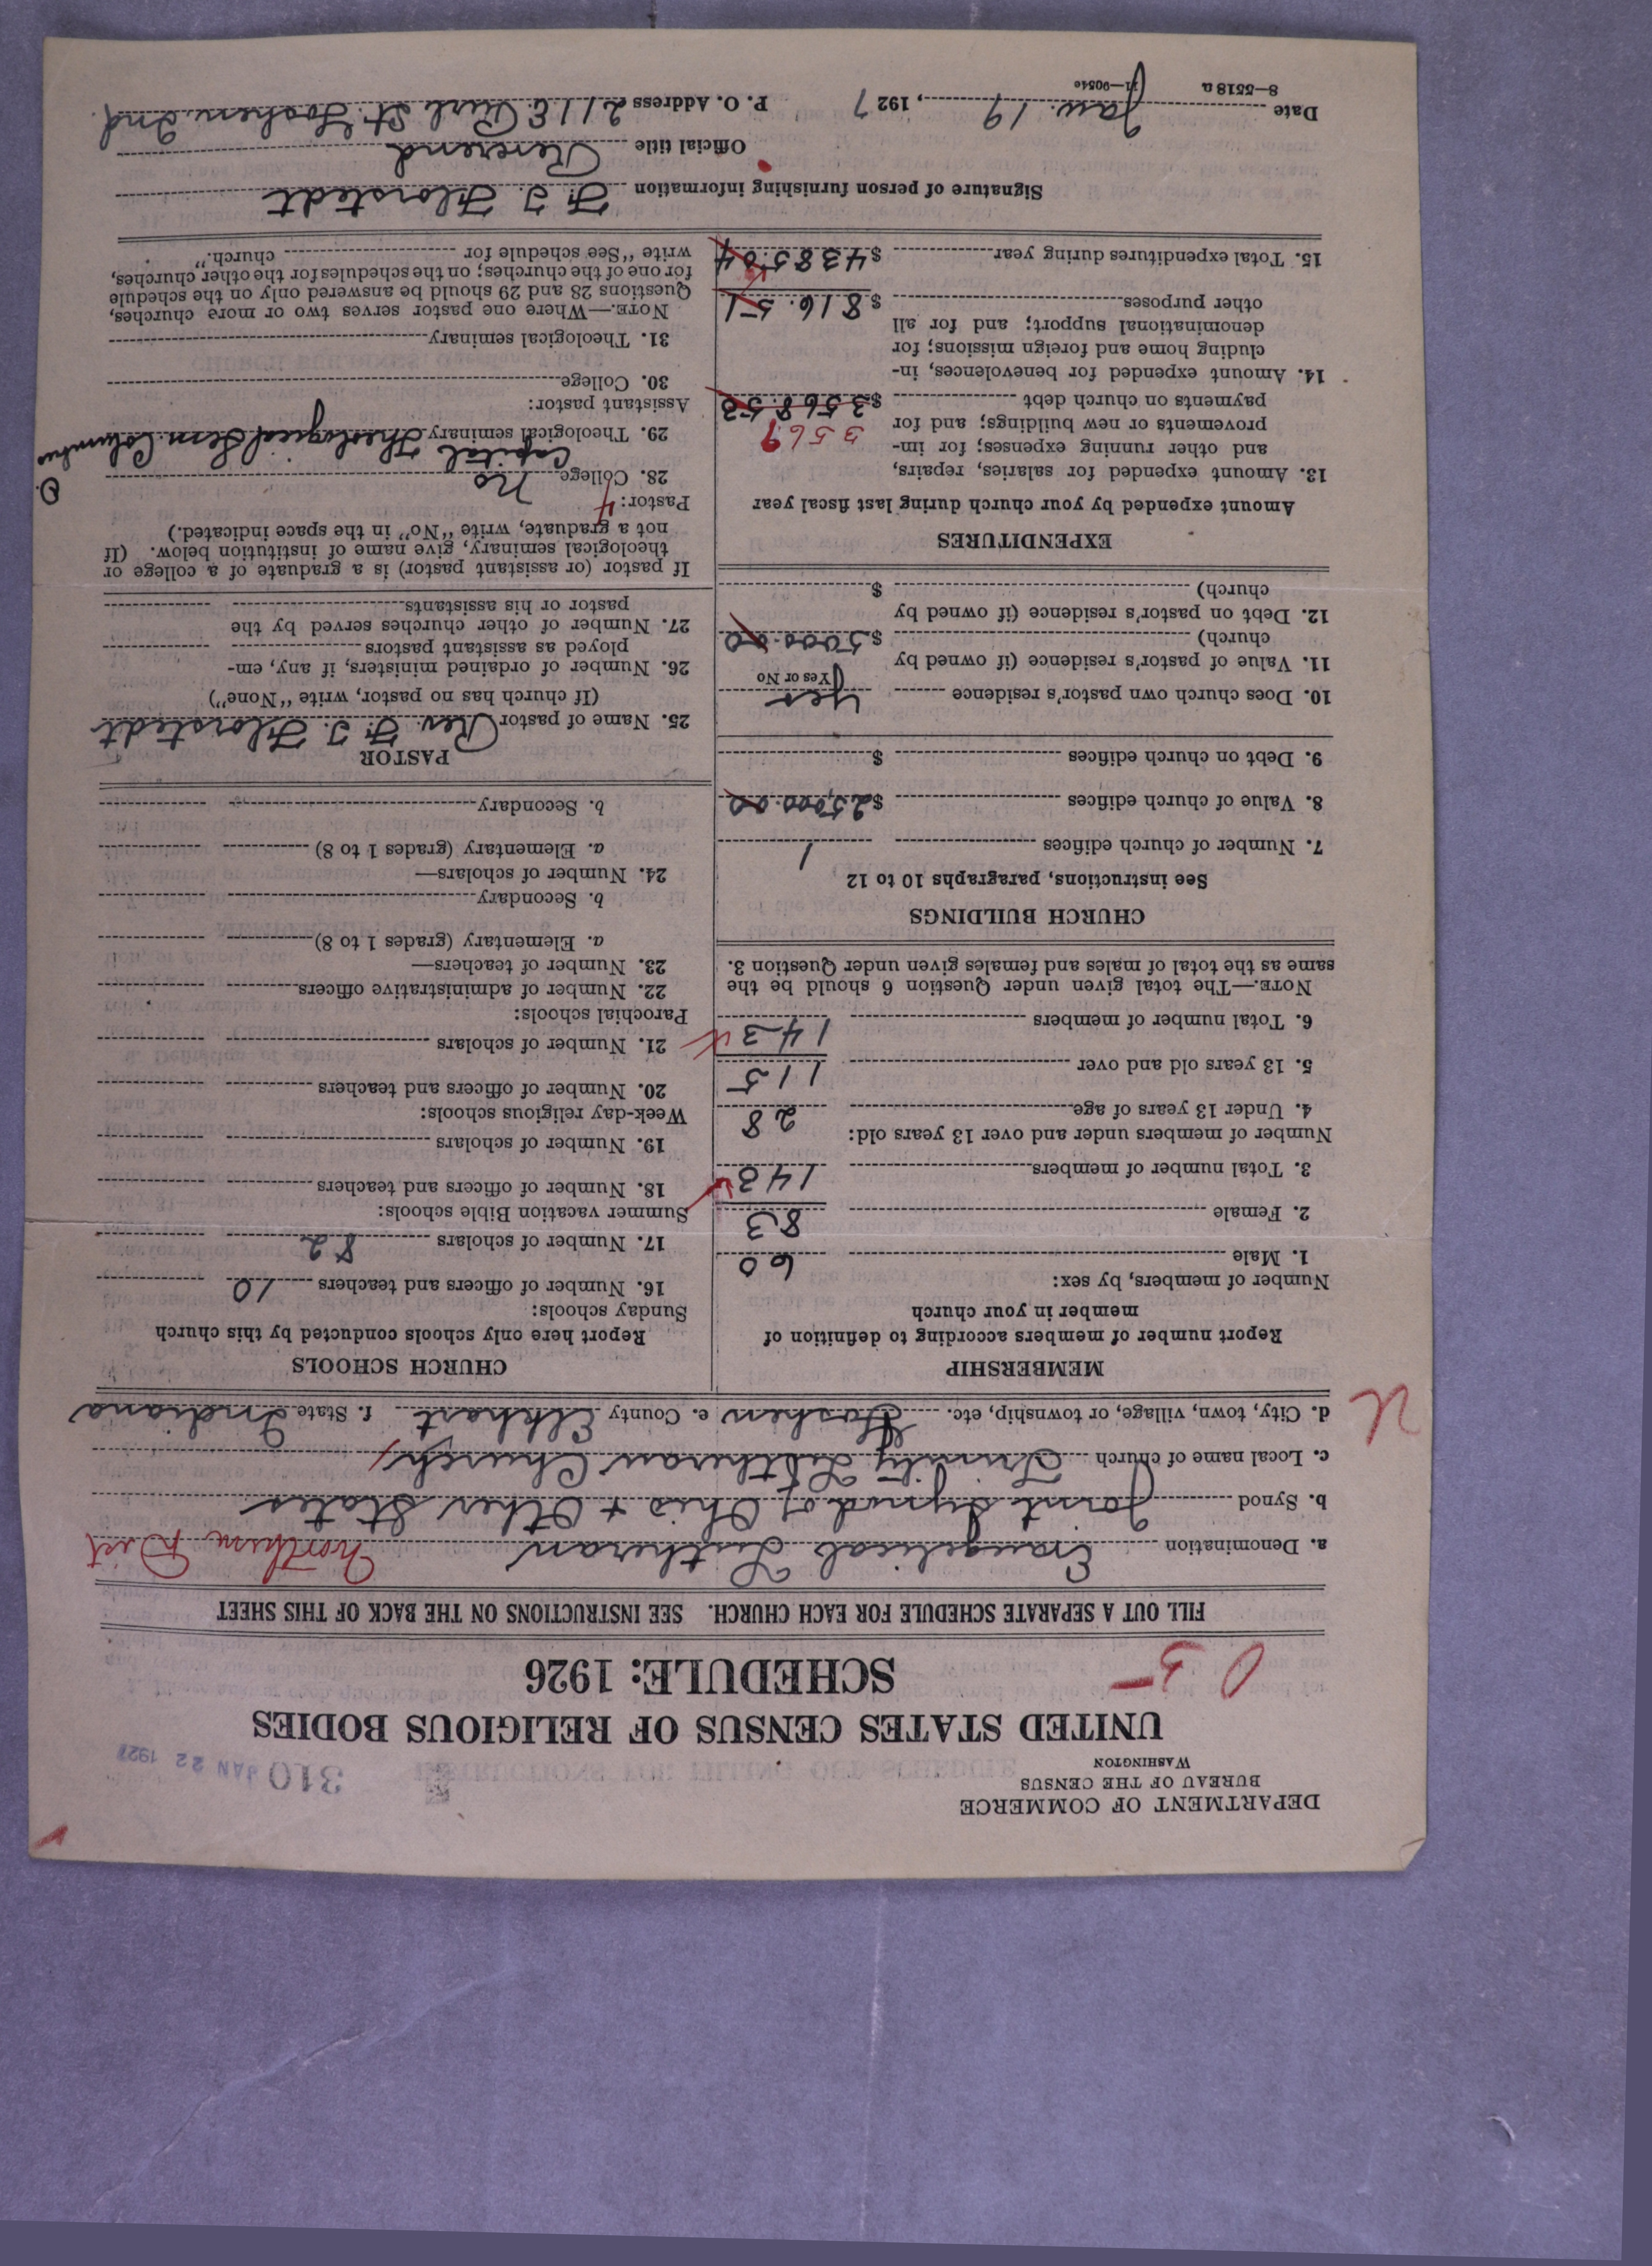 DEPARTMENT OF COMMERCE
BUREAU OF THE CENSUS
WASHINGTON
310 JAN 22 1927
UNITED STATES CENSUS OF RELIGIOUS BODIES
SCHEDULE: 1926
05
FILL OUT A SEPARATE SCHEDULE FOR EACH CHURCH. SEE INSTRUCTIONS ON THE BACK OF THIS SHEET
a. Denomination Evangelical Lutheran Northern Dist
b. Synod Joint Synod of Ohio + Other States
c. Local name of church Trinity Lutheran Church
d. City, town, village, or township, etc. Goshen e. County Elkhart f. State Indiana
U
MEMBERSHIP
Report number of members according to definition of
member in your church
Number of members, by sex:
1. Male 60
2. Female 83
3. Total number of members 143
Number of members under and over 13 years old:
4. Under 13 years of age 28
5. 13 years old and over 115
6. Total number of members 143
NOTE.—The total given under Question 6 should be the
same as the total of males and females given under Question 3.
CHURCH BUILDINGS
See instructions, paragraphs 10 to 12
7. Number of church edifices 1
8. Value of church edifices $25,000.00
9. Debt on church edifices $
10. Does church own pastor's residence yes
(Yes or No)
11. Value of pastor's residence (if owned by
church) $5000.00
12. Debt on pastor's residence (if owned by
church) $
EXPENDITURES
Amount expended by your church during last fiscal year
13. Amount expended for salaries, repairs,
and other running expenses; for im-
provements or new buildings; and for 3569
payments on church debt $3568.53
14. Amount expended for benevolences, in-
cluding home and foreign missions; for
denominational support; and for all
other purposes $816.51
15. Total expenditures during year $4385.04
CHURCH SCHOOLS
Report here only schools conducted by this church
Sunday schools:
16. Number of officers and teachers 10
17. Number of scholars 82
Summer vacation Bible schools:
18. Number of officers and teachers
19. Number of scholars
Week-day religious schools:
20. Number of officers and teachers
21. Number of scholars
Parochial schools:
22. Number of administrative officers
23. Number of teachers—
a. Elementary (grades 1 to 8)
b. Secondary
24. Number of scholars—
a. Elementary (grades 1 to 8)
b. Secondary
PASTOR
25. Name of pastor Rev. F. T. Florstedt
(If church has no pastor, write "None")
26. Number of ordained ministers, if any, em-
ployed as assistant pastors
27. Number of other churches served by the
pastor or his assistants
If pastor (or assistant pastor) is a graduate of a college or
theological seminary, give name of institution below. (If
not a graduate, write "No" in the space indicated.)
Pastor: 4
28. College no
29. Theological seminary Capital Theological Sem. Columbus O.
Assistant pastor:
30. College
31. Theological seminary
NOTE.—Where one pastor serves two or more churches,
Questions 28 and 29 should be answered only on the schedule
for one of the churches; on the schedules for the other churches,
write "See schedule for church."
Signature of person furnishing information F. T. Florstedt
Official title Reverend
Date Jan. 19, 1927 P. O. Address 211 E. Purl St. Goshen. Ind.
8-5518a 11-90540